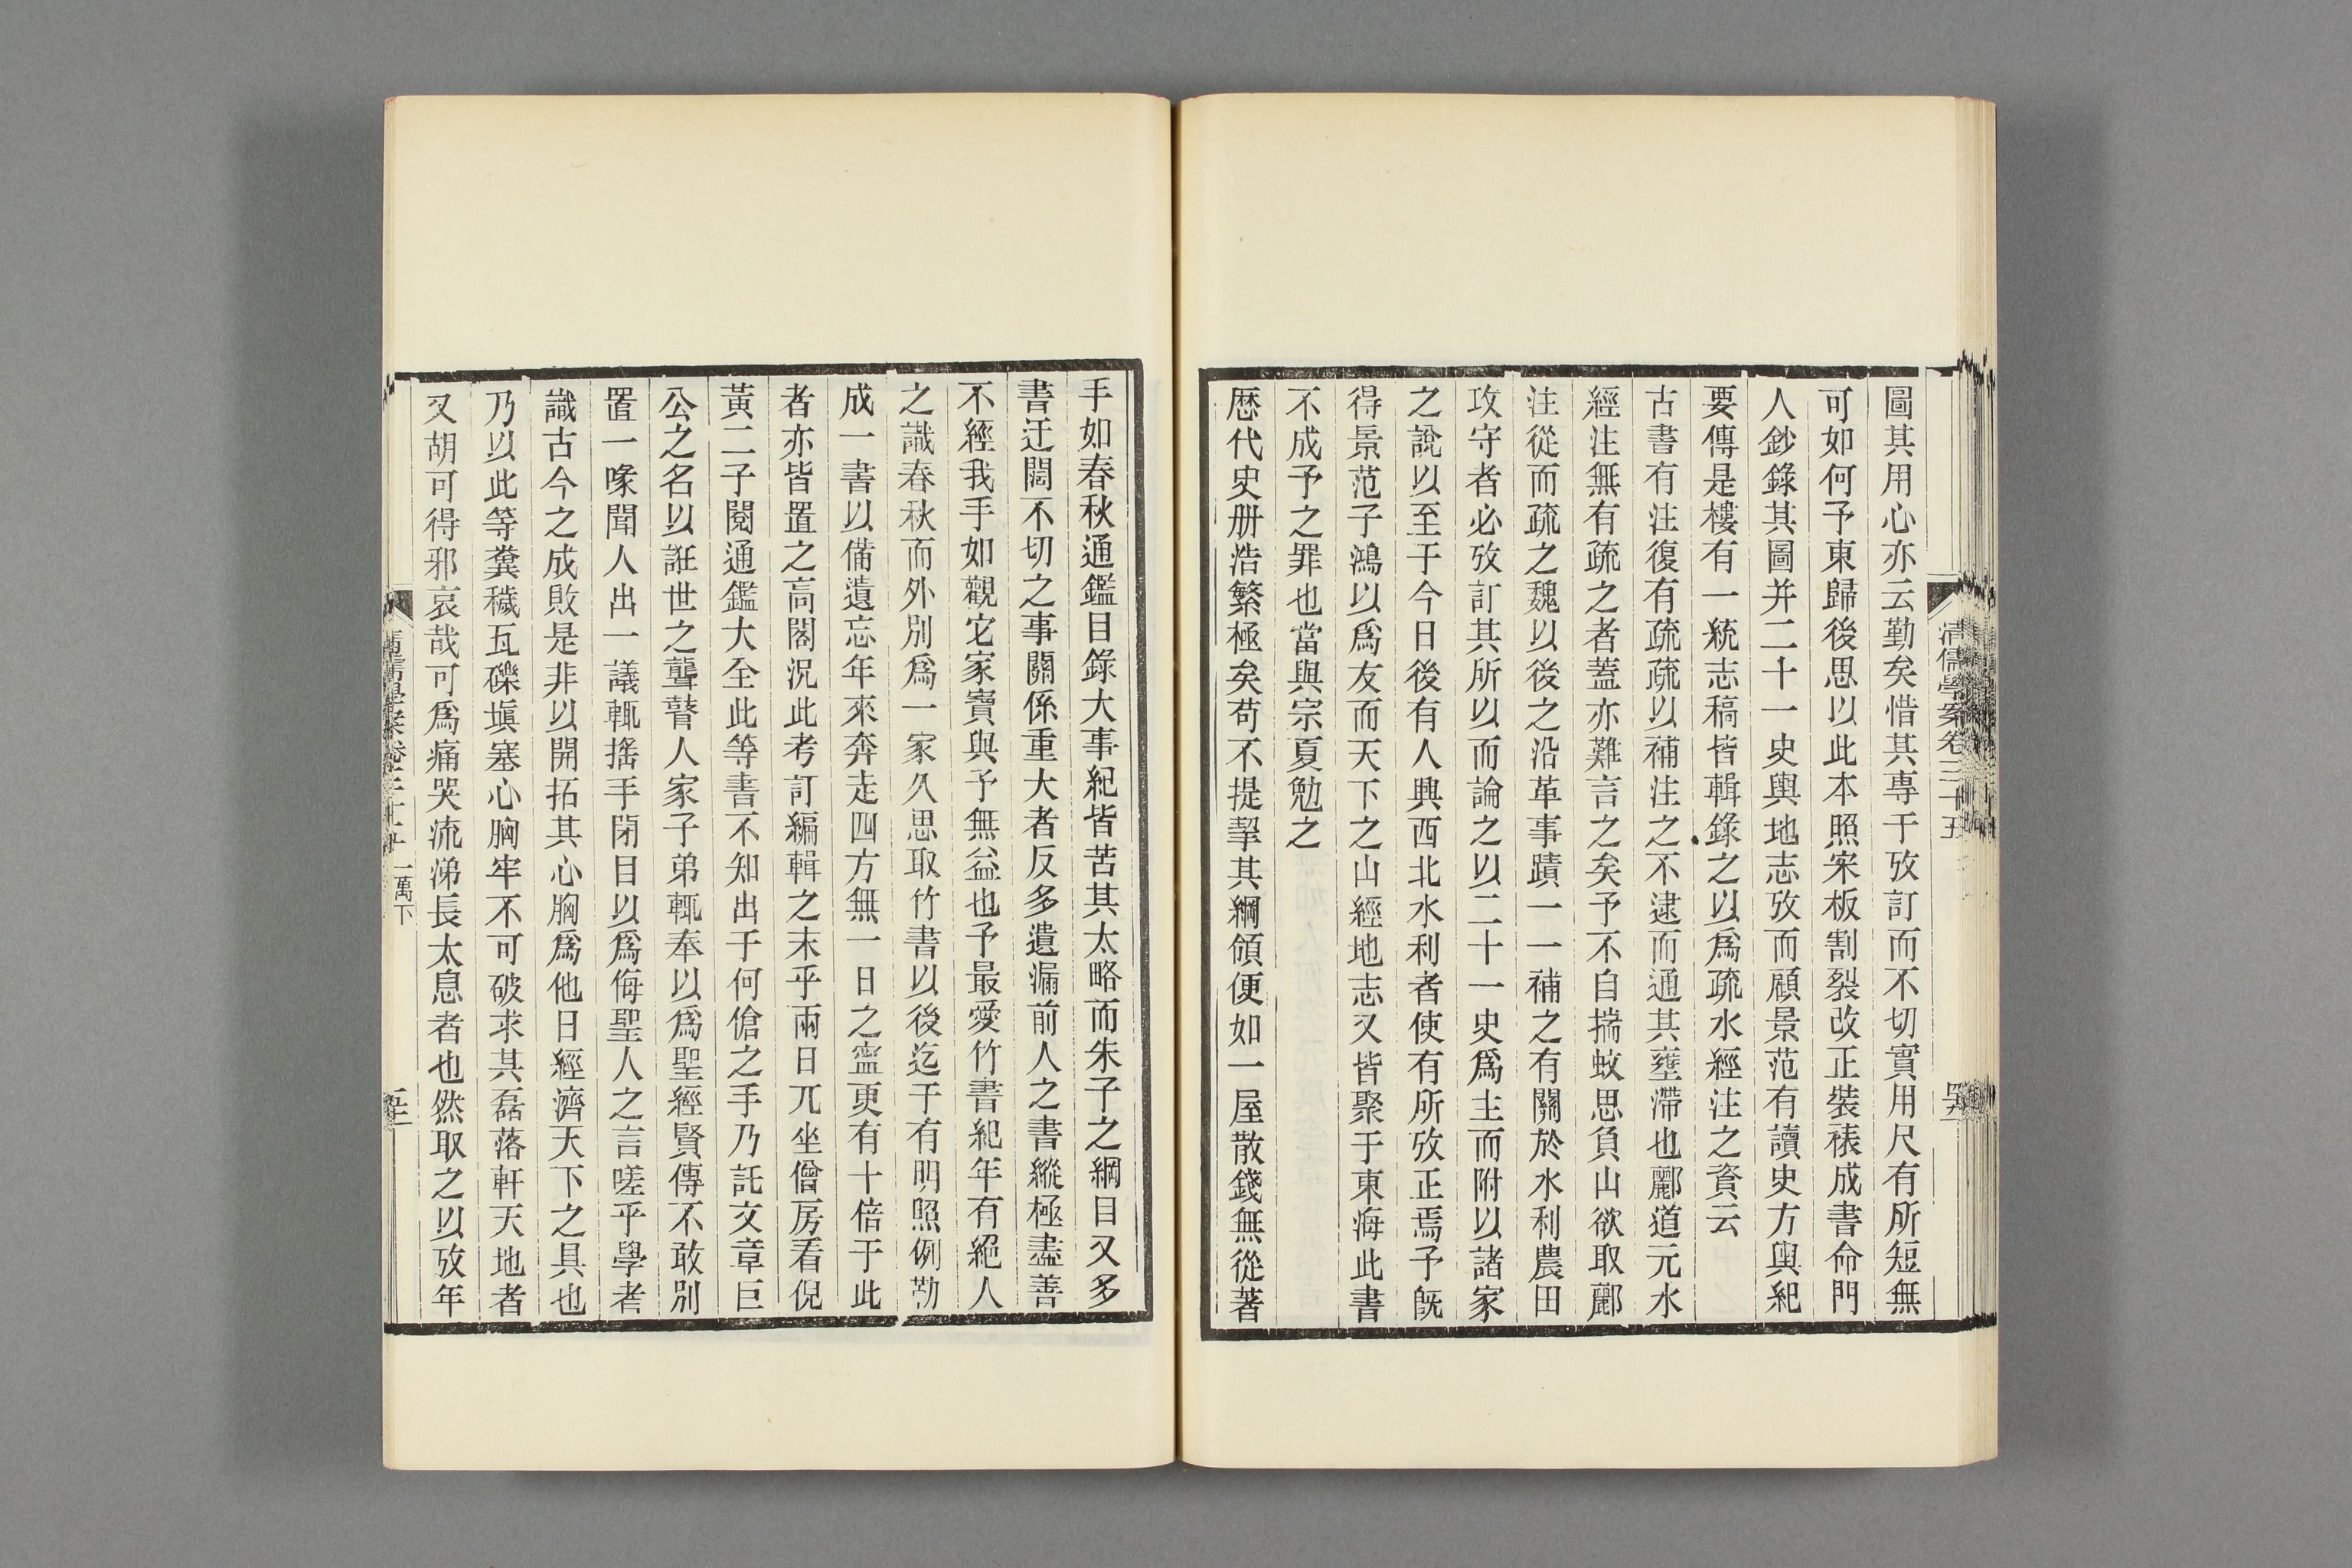 清儒學案卷二十五
圖其用心亦云勤矣惜其專于攷訂而不切實用尺有所短無
可如何予東歸後思以此本照宋板割裂改正裝裱成書命門
人鈔錄其圖并二十一史輿地志攷而顧景范有讀史方輿紀
要傳是樓有一統志稿皆輯錄之以爲疏水經注之資云
古書有注復有疏疏以補注之不逮而通其壅滯也酈道元水
經注無有疏之者蓋亦難言之矣予不自揣蚊思負山欲取酈
注從而疏之魏以後之沿革事蹟一一補之有關於水利農田
攻守者必攷訂其所以而論之以二十一史爲主而附以諸家
之說以至于今日後有人興西北水利者使有所攷正焉予旣
得景范子鴻以爲友而天下之山經地志又皆聚于東海此書
不成予之罪也當與宗夏勉之
歷代史册浩繁極矣苟不提挈其綱領便如一屋散錢無從著
手如春秋通鑑目錄大事紀皆苦其太略而朱子之綱目又多
書迂闊不切之事關係重大者反多遺漏前人之書縱極盡善
不經我手如觀它家寶與予無益也予最愛竹書紀年有絕人
之識春秋而外別爲一家久思取竹書以後迄于有明照例勒
成一書以備遺忘年來奔走四方無一日之寧更有十倍于此
者亦皆置之高閣況此考訂編輯之末乎兩日兀坐僧房看倪
黃二子閱通鑑大全此等書不知出于何傖之手乃託文章巨
公之名以誑世之聾瞽人家子弟輒奉以爲聖經賢傳不敢別
置一喙聞人出一議輒搖手閉目以爲侮聖人之言嗟乎學者
識古今之成敗是非以開拓其心胸爲他日經濟天下之具也
乃以此等糞穢瓦礫塡塞心胸牢不可破求其磊落軒天地者
又胡可得邪哀哉可爲痛哭流涕長太息者也然取之以攷年
清儒學案卷二十五 一萬下